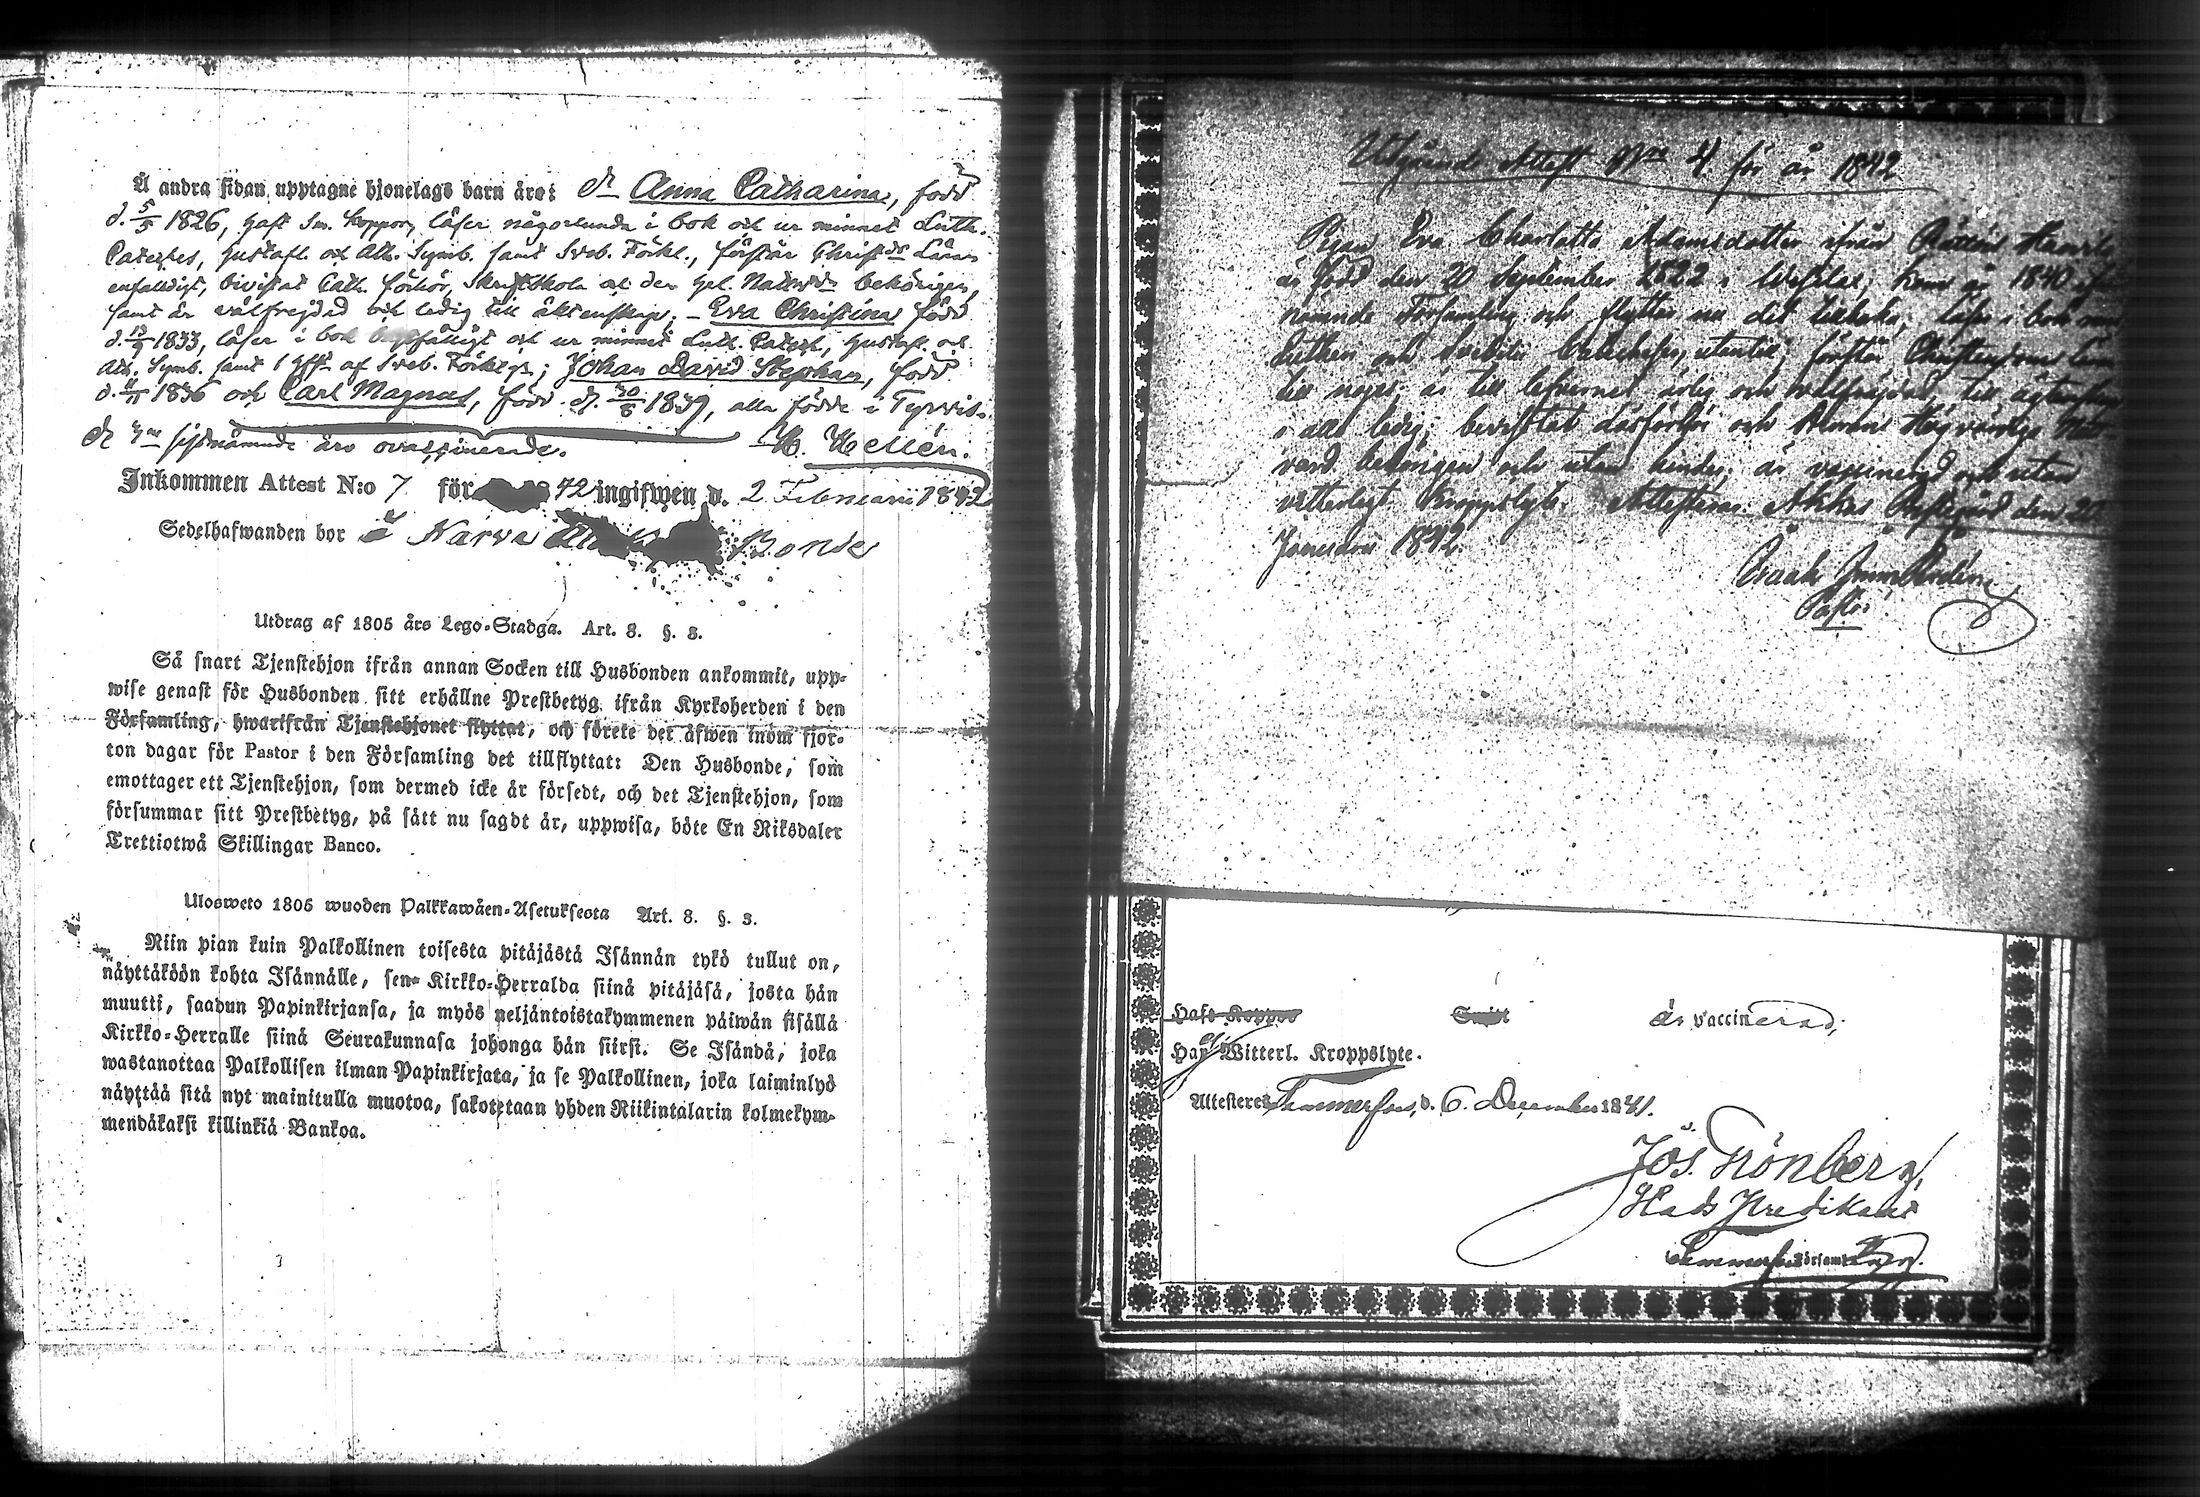 Å andra sidan upptagne hjonelags barn äro: dr Anna Catharina, född
d. 5/5 1826, haft Sm. koppor, läser någorlunda i bok och ur minnet Luth.
Cateches, Gustafl. och Ath. Symb. samt Sveb. Förkl., förstår Christds Läran
enfaldigt, bivistat Cath. förhör, Skriftskola och den Hel. Nattvrdn behörigen,
samt är välfrejdad och ledig till äktenskap; – Eva Christina född
1833, läser i bok och ur minnet Luth. Catech., Gustafl. och
Ath. Symb. samt 1 af Sveb. Förklgn; Johan David Stephan, född
1836 och Carl Magnus, född d. 30/8 1839, alla födde i Tyrvis.
de sistnämnde äro ovaccinerade. H. Hellén.
Inkommen Attest N:o 7 för 42 ingifwen d. 2 Februarii 1842
Sedelhafwanden bor å Karva Bonde
Utdrag af 1805 års Lego-Stadga. Art. 8. §. 3.
Så snart Tjenstehjon ifrån annan Socken till Husbonden ankommit, upp-
wise genast för Husbonden sitt erhållne Prestbetyg ifrån Kyrkoherden i den
Församling, hwarifrån Tjenstehjonet flyttat, och förete det äfwen inom fjor-
ton dagar för Pastor i den Församling det tillflyttat: Den Husbonde, som
emottager ett Tjenstehjon, som dermed icke är försedt, och det Tjenstehjon, som
försummar sitt Prestbetyg, på sätt nu sagdt är, uppwisa, böte En Riksdaler
Trettiotwå Skillingar Banco.
Ulosweto 1805 wuoden Palkkawäen-Asetuksesta Art. 8. §. 3.
Niin pian kuin Palkollinen toisesta pitäjästä Isännän tykö tullut on,
näyttäköön kohta Isännälle, sen Kirkko-Herralda siinä pitäjäsä, josta hän
muutti, saadun Papinkirjansa, ja myös neljäntoistakymmenen päiwän sisällä
Kirkko-Herralle siinä Seurakunnasa johonga hän siirsi. Se Isändä, joka
wastanottaa Palkollisen ilman Papinkirjata, ja se Palkollinen, joka laiminlyö
näyttää sitä nyt mainitulla muotoa, sakotetaan yhden Riikintalarin kolmekym-
mendäkaksi killinkiä Bankoa.
Utgående Attest No 4 för år 1842
Pigan Eva Charlotta Adamsdotter ifrån
är född den 20 September 1822 i kom år 1840
nämnde Församling och flyttar nu dit tillbaka; läser i bok
och utantil; förstår Christendoms
till nöjes; är till lefvernet ärlig och välfrejdad, till ägtenskap
i allo ledig; bevistat läsförhör och Herrans Högvärdiga Natt-
vard behörigen och utan hinder; är vaccinerad och utan
vitterligt kroppslyte. Attesteras Akkas Prestgård den 20
Januarii 1842.
Pastor
Haft Koppor Smitt är vaccinerad;
Har ej Witterl. Kroppslyte.
Attesteres Tammerfors, d. 6. December 1841.
Jos. Grönberg,
Stads Predikant
Tammerfors Församling.